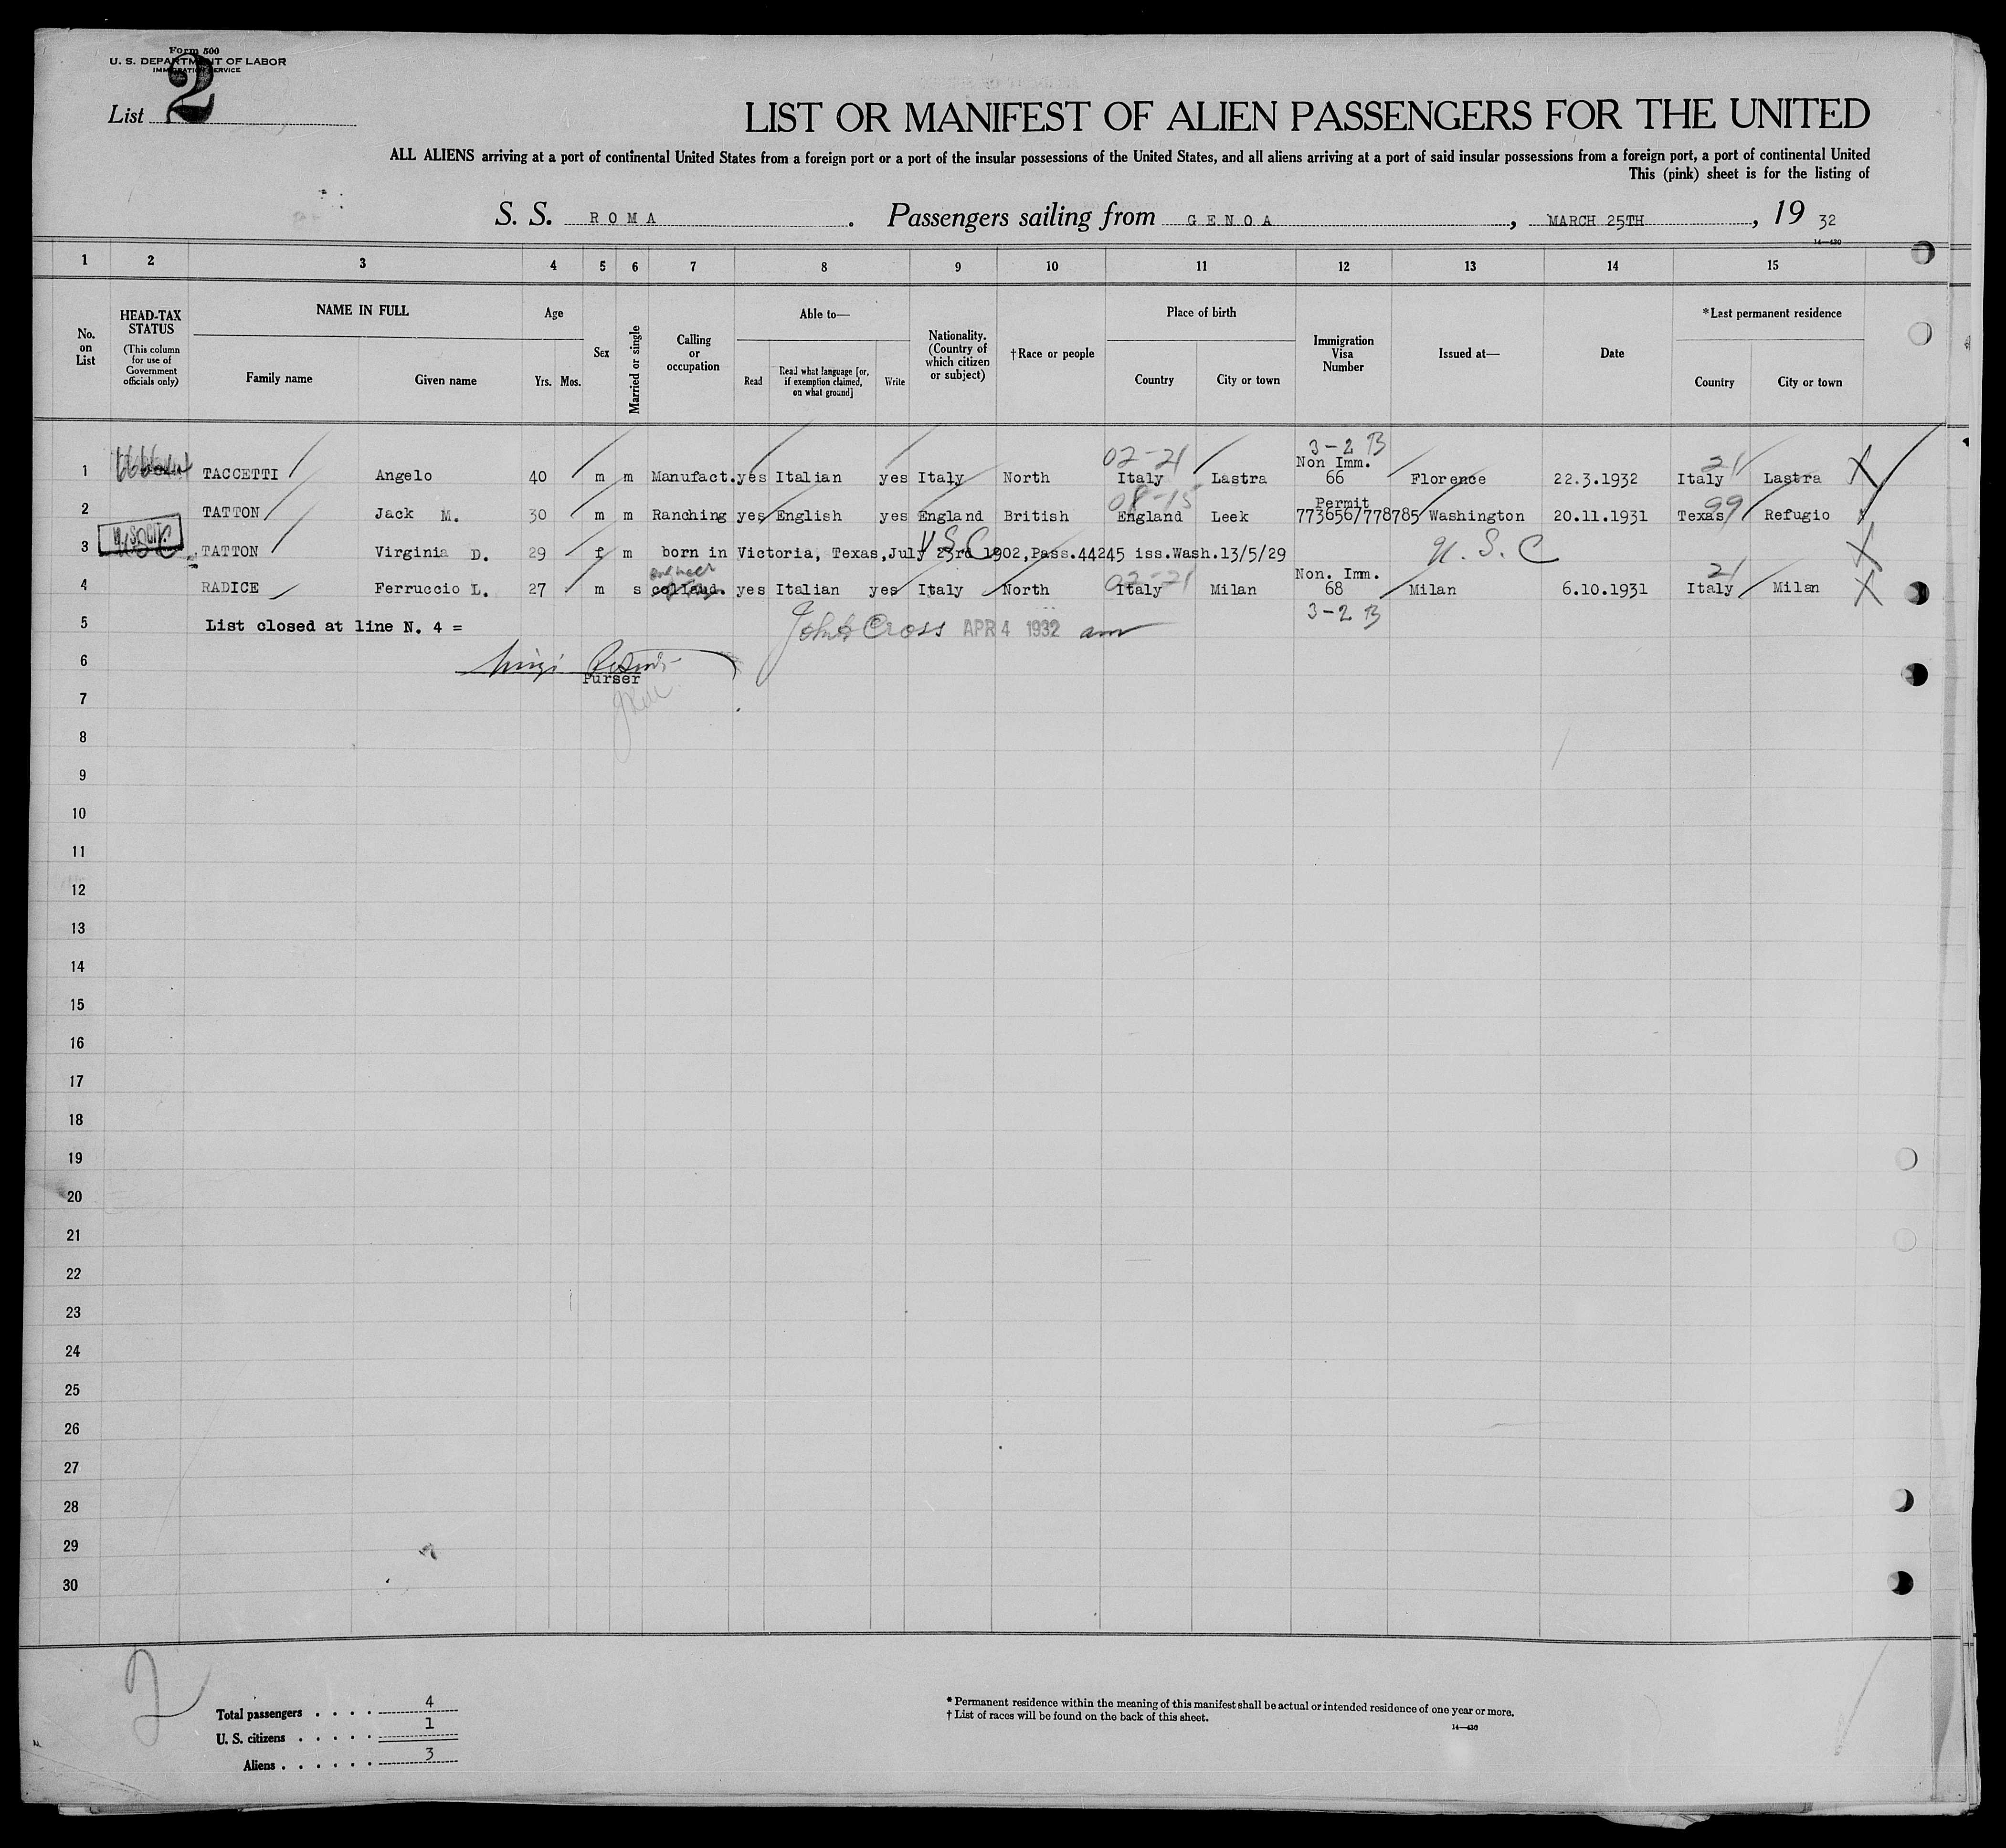 Form 500
U. S. DEPARTMENT OF LABOR
IMMIGRATION SERVICE
List 2
LIST OR MANIFEST OF ALIEN PASSENGERS FOR THE UNITED
ALL ALIENS arriving at a port of continental United States from a foreign port or a port of the insular possessions of the United States, and all aliens arriving at a port of said insular possessions from a foreign port, a port of continental United
This (pink) sheet is for the listing of
S. S. ROMA. Passengers sailing from GENOA, MARCH 25TH, 19 32
14—430
1 2 3 4 5 6 7 8 9 10 11 12 13 14 15
No. on List
HEAD-TAX STATUS
(This column for use of Government officials only)
NAME IN FULL
Family name Given name
Age
Yrs. Mos.
Sex
Married or single
Calling or occupation
Able to—
Read
Read what language [or, if exemption claimed, on what ground]
Write
Nationality. (Country of which citizen or subject)
†Race or people
Place of birth
Country City or town
Immigration Visa Number
Issued at—
Date
*Last permanent residence
Country City or town
3-2 B
02-21 Non Imm. 21
1 TACCETTI Angelo 40 m m Manufact. yes Italian yes Italy North Italy Lastra 66 Florence 22.3.1932 Italy Lastra X
08-15 Permit 99
2 TATTON Jack M. 30 m m Ranching yes English yes England British England Leek 773656/778785 Washington 20.11.1931 Texas Refugio
3 USC TATTON Virginia D. 29 f m born in Victoria, Texas, July 23rd 1902, Pass.44245 iss.Wash.13/5/29 U.S.C. U. S. C X
02-21 Non. Imm. 21
4 RADICE Ferruccio L. 27 m s yes Italian yes Italy North Italy Milan 68 Milan 6.10.1931 Italy Milan X
3-2 B
5 List closed at line N. 4 = Cross APR 4 1932
6
Purser
7
8
9
10
11
12
13
14
15
16
17
18
19
20
21
22
23
24
25
26
27
28
29
30
2
Total passengers . . . . 4
U. S. citizens . . . . . 1
Aliens . . . . . . 3
* Permanent residence within the meaning of this manifest shall be actual or intended residence of one year or more.
† List of races will be found on the back of this sheet.
14—430